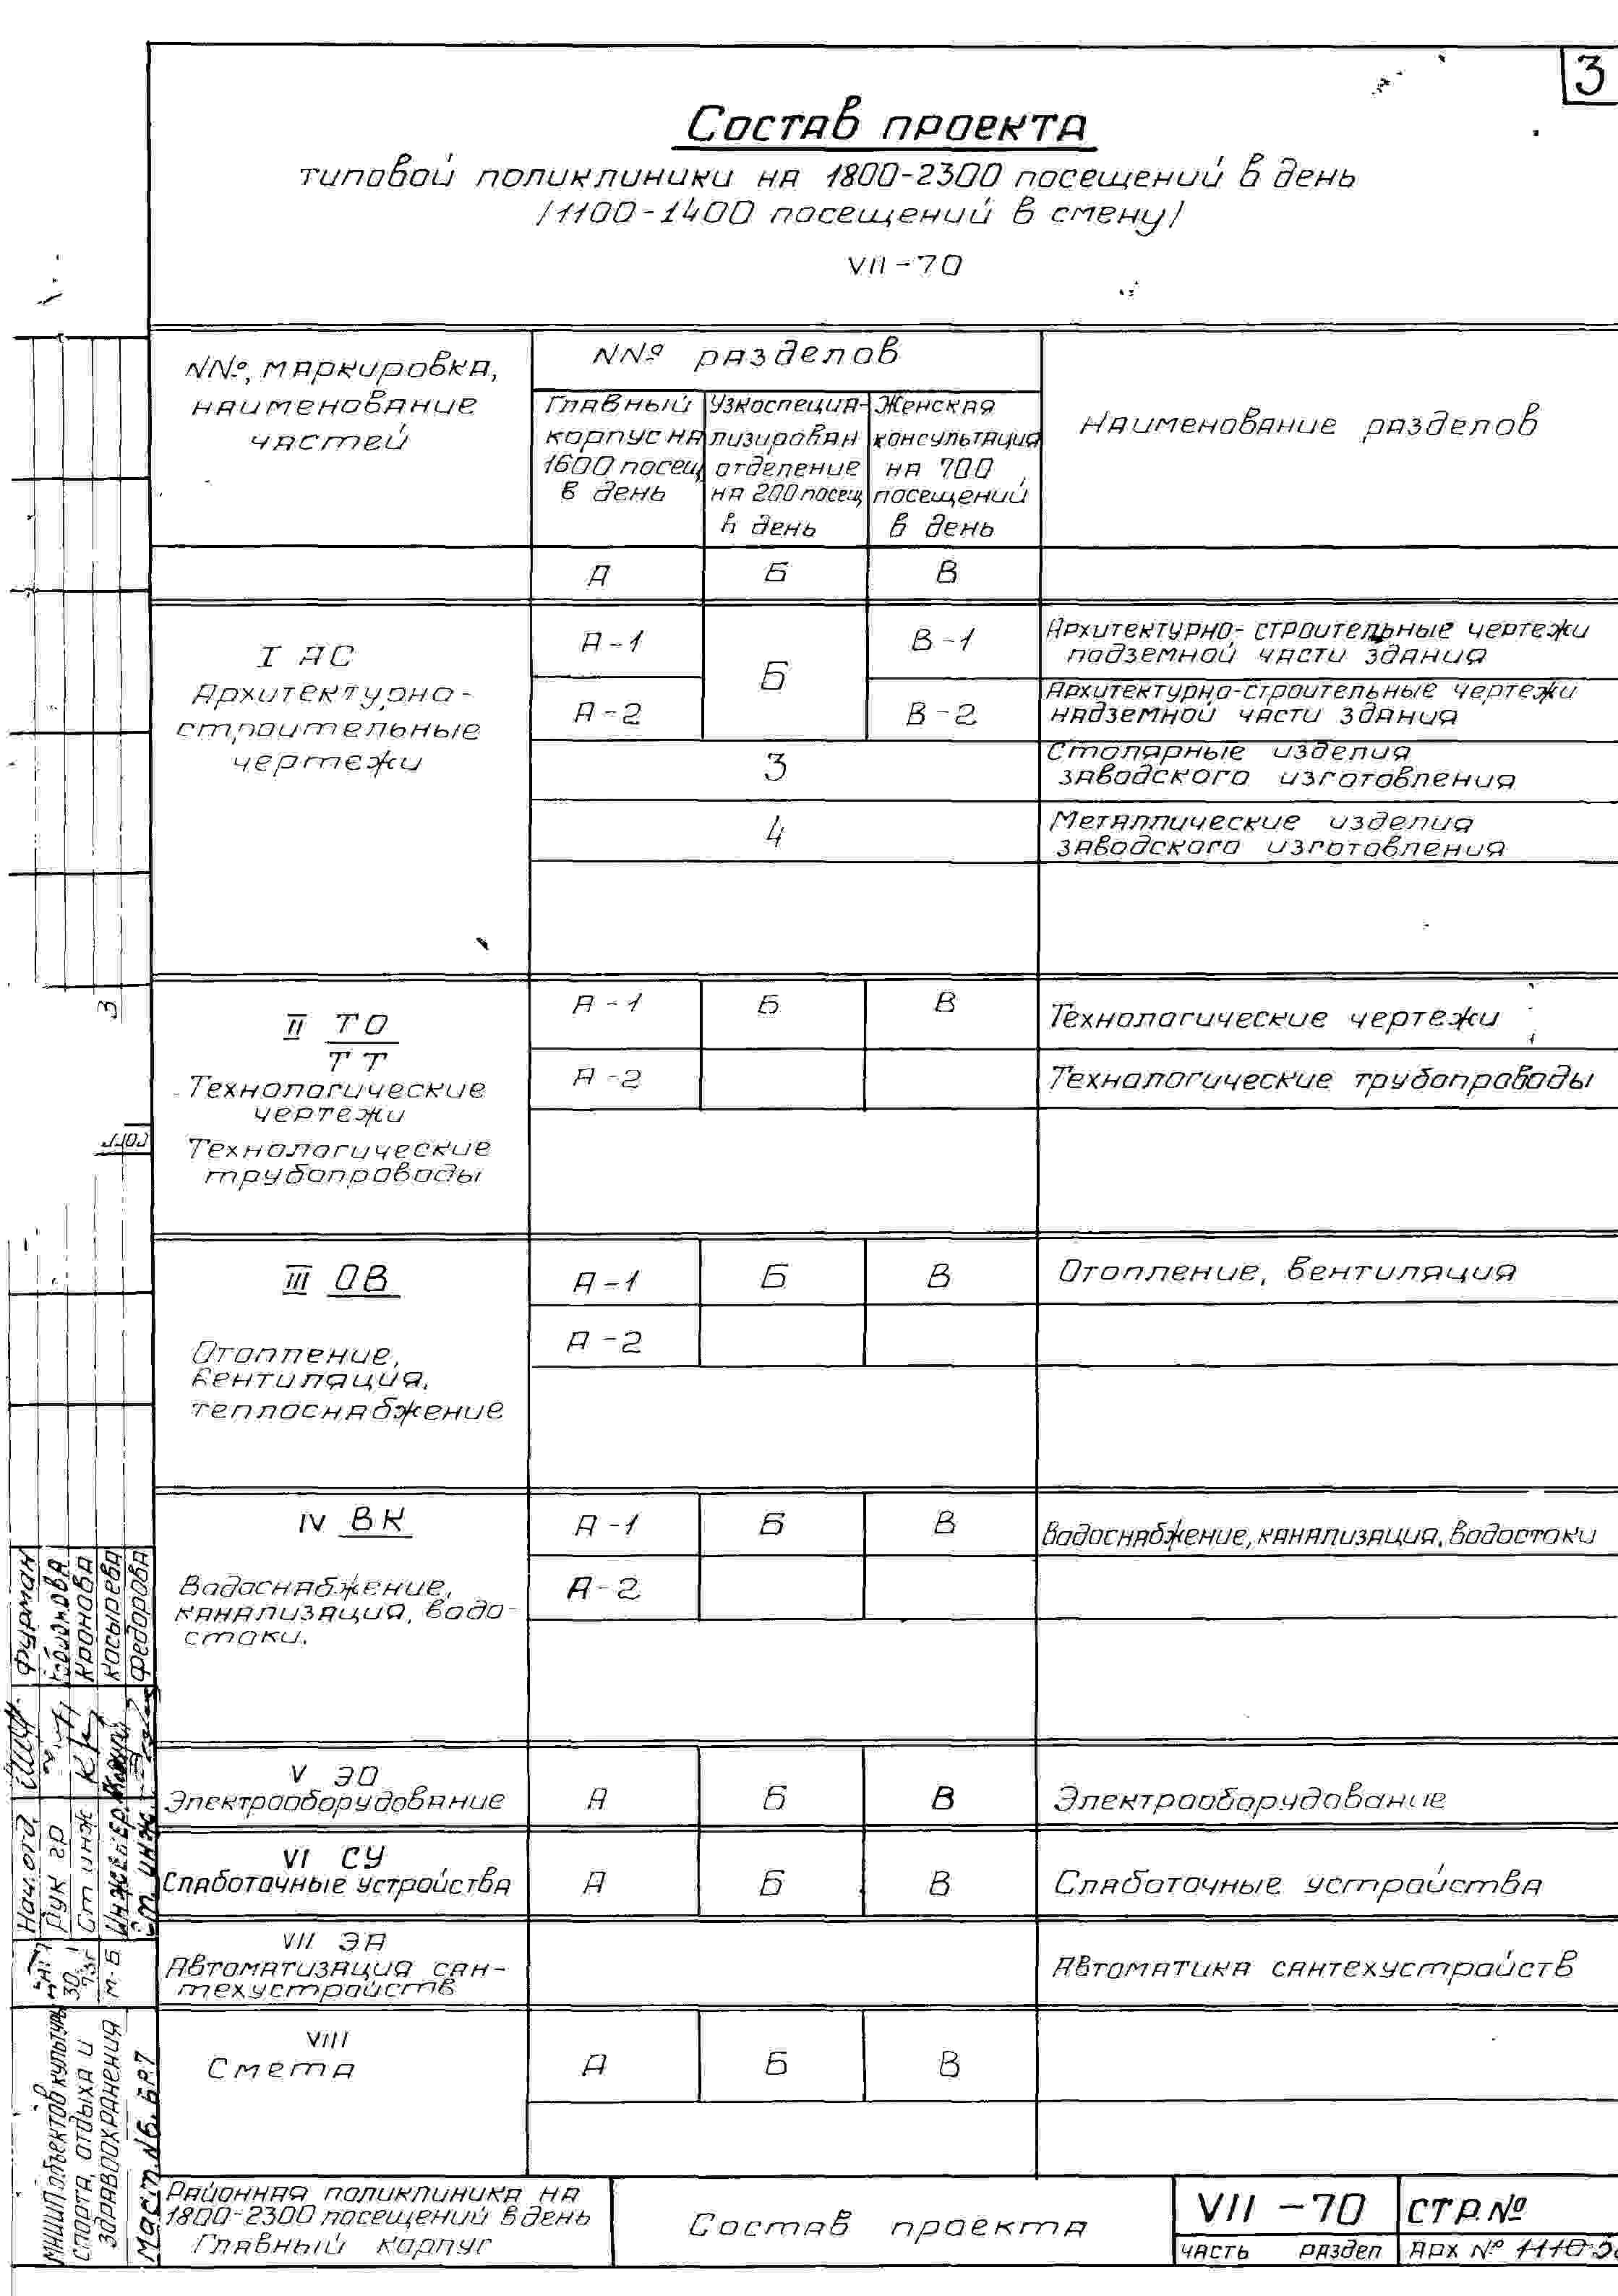 3
Состав проекта
типовой поликлиники на 1800-2300 посещений в день
/1100-1400 посещений в смену/
VII-70
NNº, маркировка,
наименование
частей
NNº разделов
Главный
корпус на
1600 посещ
в день
Узкоспециа-
лизирован
отделение
на 200 посещ
в день
Женская
консультация
на 700
посещений
в день
Наименование разделов
А Б В
I АС
Архитектурно-
строительные
чертежи
А-1 Б В-1 Архитектурно-строительные чертежи
подземной части здания
А-2 В-2 Архитектурно-строительные чертежи
надземной части здания
3 Столярные изделия
заводского изготовления
4 Металлические изделия
заводского изготовления
II ТО
ТТ
Технологические
чертежи
Технологические
трубопроводы
А-1 Б В Технологические чертежи
А-2 Технологические трубопроводы
III ОВ
Отопление,
вентиляция,
теплоснабжение
А-1 Б В Отопление, вентиляция
А-2
IV ВК
Водоснабжение,
канализация, водо-
стоки.
А-1 Б В Водоснабжение, канализация, водостоки
А-2
V ЭО
Электрооборудование А Б В Электрооборудование
VI СУ
Слаботочные устройства А Б В Слаботочные устройства
VII ЭА
Автоматизация сан-
техустройств
Автоматика сантехустройств
VIII
Смета А Б В
Районная поликлиника на
1800-2300 посещений в день
Главный корпус
Состав проекта
VII-70
часть раздел
СТР.Nº
АРХ Nº 1110
3
Фурман
Кронова
Косырева
Федорова
Нач. отд
Рук гр
Ст инж
Инженер
Ст. инж.
М-Б
МНИИП объектов культуры
спорта, отдыха и
здравоохранения
Маст. N6.